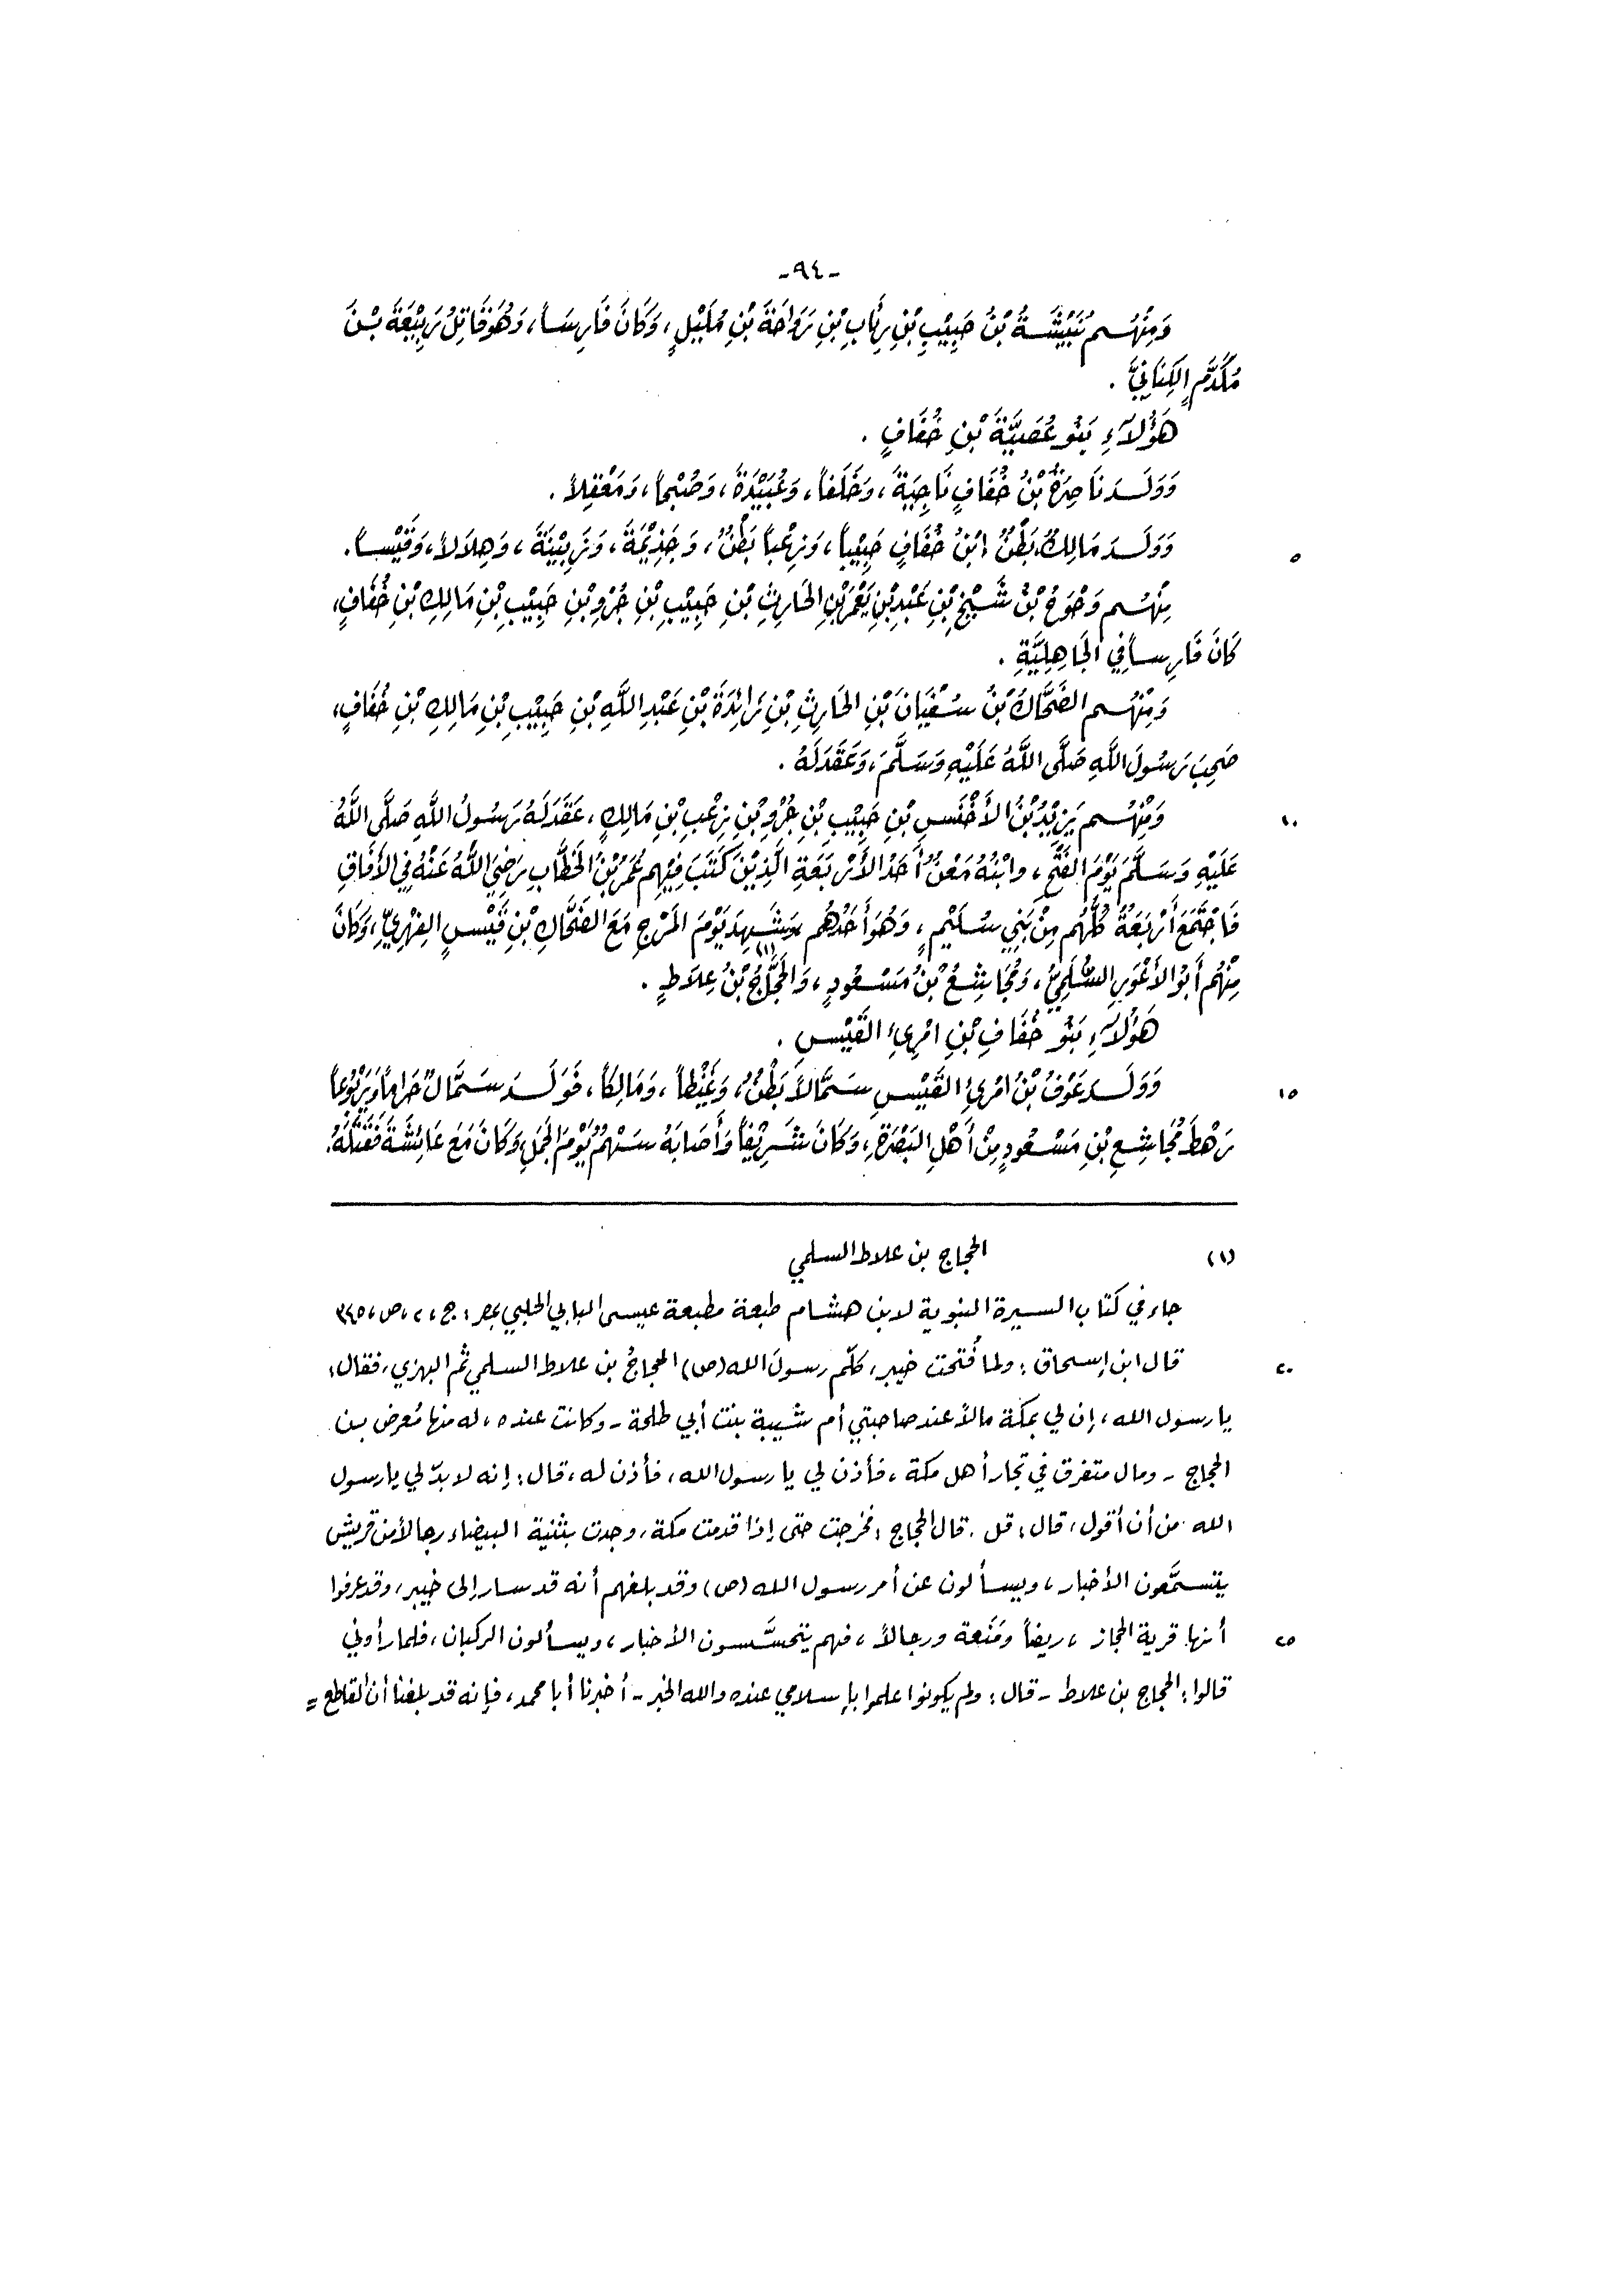 -٩٤-
وَمِنْهُم نُبَيْشَةُ بْنُ حَبِيْبِ بْنِ رِئَابِ بْنِ رَوَاحَةَ بْنِ مُلَيْلٍ، وَكَانَ فَارِسَاً، وَهُوَ قَاتِلُ رَبِيْعَةَ بْنَ
مُكَدَّمٍ الكِنَانِيَّ .
هَؤُلاَءِ بَنُو عُصَيَّةَ بْنِ خُفَافٍ .
وَوَلَدَ نَاصِرَةُ بْنُ خُفَافٍ نَاجِيَةَ، وَخَلَفاً، وَعُبَيْدَةَ، وَصُبْحاً، وَمَعْقِلاً .
٥ وَوَلَدَ مَالِكٌ، بَطْنٌ ابْنُ خُفَافٍ حَبِيْباً، وَزِعْباً بَطْنٌ، وَجَذِيْمَةَ، وَزَبِيْنَةَ، وَهِلاَلاً، وَقَيْساً .
مِنْهُم وَحْوَحُ بْنُ شَيْخِ بْنِ عَبْدِ بْنِ يَعْمَرَ بْنِ الحَارِثِ بْنِ حَبِيْبِ بْنِ جُرْوِ بْنِ حَبِيْبِ بْنِ مَالِكِ بْنِ خُفَافٍ،
كَانَ فَارِساً فِي الجَاهِلِيَّةِ .
وَمِنْهُم الضَّحَّاكُ بْنُ سُفْيَانَ بْنِ الحَارِثِ بْنِ زَائِدَةَ بْنِ عَبْدِ اللَّهِ بْنِ حَبِيْبِ بْنِ مَالِكِ بْنِ خُفَافٍ،
صَحِبَ رَسُولَ اللَّهِ صَلَّى اللَّهُ عَلَيْهِ وَسَلَّمَ، وَعَقَدَ لَهُ .
١٠ وَمِنْهُم يَزِيْدُ بْنُ الأَخْنَسِ بْنِ حَبِيْبِ بْنِ جُرْوِ بْنِ زِعْبِ بْنِ مَالِكٍ، عَقَدَ لَهُ رَسُولُ اللَّهِ صَلَّى اللَّهُ
عَلَيْهِ وَسَلَّمَ يَوْمَ الفَتْحِ، وابْنُهُ مَعْنُ أَحَدُ الأَرْبَعَةِ الَّذِيْنَ كَتَبَ فِيْهِم عُمَرُ بْنُ الخَطَّابِ رَضِيَ اللَّهُ عَنْهُ فِي الأَفَاقِ
فَاجْتَمَعَ أَرْبَعَةٌ كُلُّهُم مِنْ بَنِي سُلَيْمٍ، وَهُوَ أَحَدُهُم وَشَهِدَ يَوْمَ المَرْجِ مَعَ الضَّحَّاكِ بْنِ قَيْسٍ الفِهْرِيِّ، وَكَانَ
مِنْهُم أَبُو الأَعْوَرِ السُّلَمِيُّ، وَمُجَاشِعُ بْنُ مَسْعُودٍ، وَالحَجَّاجُ(١) بْنُ عِلاَطٍ .
هَؤُلاَءِ بَنُو خُفَافِ بْنِ امْرِئِ القَيْسِ .
١٥ وَوَلَدَ عَوْفُ بْنُ امْرِئِ القَيْسِ سَمَّالاً بَطْنٌ، وَغَيْظاً، وَمَالِكاً، فَوَلَدَ سَمَّالٌ حَرَاماً، وَيَرْبُوعاً
رَهْطَ مُجَاشِعِ بْنِ مَسْعُودٍ مِنْ أَهْلِ البَصْرَةِ، وَكَانَ شَرِيْفاً وَأَصَابَهُ سَهْمٌ يَوْمَ الجَمَلِ وَكَانَ مَعَ عَائِشَةَ فَقَتَلَهُ.
(١) الحجاج بن علاط السلمي
جاء في كتاب السيرة النبوية لابن هشام طبعة مطبعة عيسى البابي الحلبي بمصر: ج، ٢، ص، ٣٤٥
٢٠ قال ابن إسحاق: ولما فُتحت خيبر، كلّم رسولَ الله (ص) الحجاجُ بن علاط السلمي ثم البهزي، فقال:
يا رسول الله، إن لي بمكة مالاً عند صاحبتي أم شيبة بنت أبي طلحة - وكانت عنده، له منها مُعرض بن
الحجاج - ومال متفرق في تجار أهل مكة، فأذن لي يا رسول الله، فأذن له، قال: إنه لا بدّ لي يا رسول
الله من أن أقول، قال: قل. قال الحجاج: فخرجت حتى إذا قدمت مكة، وجدت بثنية البيضاء رجالاً من قريش
يتسمَّعون الأخبار، ويسألون عن أمر رسول الله (ص) وقد بلغهم أنه قد سار إلى خيبر، وقد عرفوا
٢٥ أنها قرية الحجاز، ريفاً ومَنَعة ورجالاً، فهم يتحسَّسون الأخبار، ويسألون الركبان، فلما رأوني
قالوا: الحجاج بن علاط - قال: ولم يكونوا علموا بإسلامي عنده والله الخبر - أخبرنا أبا محمد، فإنه قد بلغنا أن القاطع =